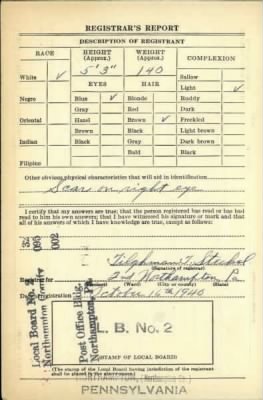 REGISTRAR'S REPORT
DESCRIPTION OF REGISTRANT
RACE HEIGHT (Approx.) WEIGHT (Approx.) COMPLEXION
5' 3" 140 Sallow
White ✓ EYES HAIR Light ✓
Negro Blue ✓ Blonde Ruddy
Gray Red Dark
Oriental Hazel Brown ✓ Freckled
Brown Black Light brown
Indian Black Gray Dark brown
Bald Black
Filipino
Other obvious physical characteristics that will aid in identification
Scar on right eye
I certify that my answers are true; that the person registered has read or has had
read to him his own answers; that I have witnessed his signature or mark and that
all of his answers of which I have knowledge are true, except as follows:
(Signature of registrar)
Registrar for 2nd Northampton Pa
(Precinct) (Ward) (City or county) (State)
Date of registration October 16th 1940
Local Board No.
Northampton County
095
002
Post Office Bldg.
Northampton, Pa.
L. B. No. 2
(STAMP OF LOCAL BOARD)
(The stamp of the Local Board having jurisdiction of the registrant
shall be placed in the above space.)
PENNSYLVANIA